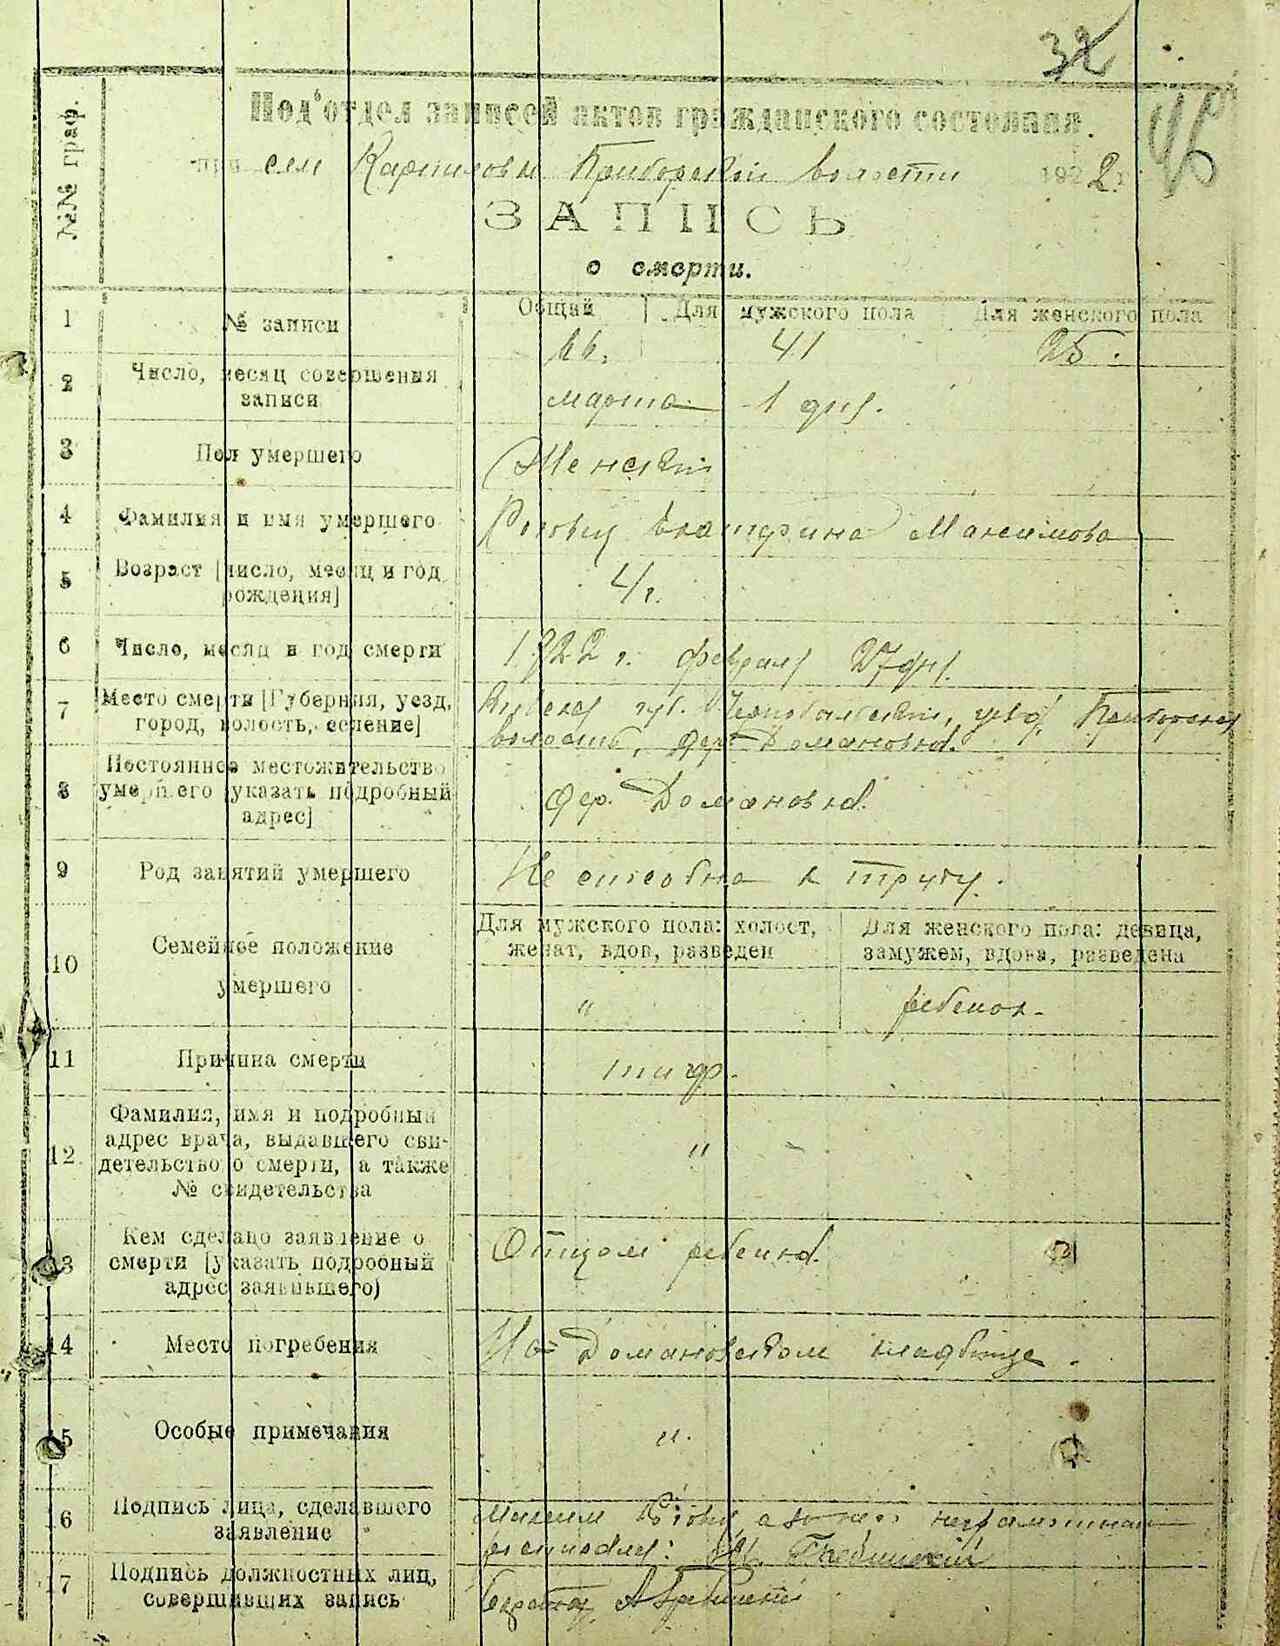 32
46
№№ граф.
Под'отдел записей актов гражданского состояния.
при сели Карпиловки Приборской волости 1922 г.
ЗАПИСЬ
о смерти.
1 № записи Общий Для мужского пола Для женского пола
66. 41 25.
2 Число, месяц совершения записи
марта 1 дня.
3 Пол умершего Женский
4 Фамилия и имя умершего Роговец Екатерина Максимова
5 Возраст [число, месяц и год рождения]
4 г.
6 Число, месяц и год смерти 1922 г. февраля 27 дня.
7 Место смерти [Губерния, уезд, город, волость, селение]
Киевская губ. Чернобыльский, уезд, Приборская
волость, дер. Домановка.
8 Постоянное местожительство умершего [указать подробный адрес]
дер. Домановка.
9 Род занятий умершего Не способна к труду.
10 Семейное положение умершего
Для мужского пола: холост, женат, вдов, разведен
Для женского пола: девица, замужем, вдова, разведена
" ребенок.
11 Причина смерти тиф.
12 Фамилия, имя и подробный адрес врача, выдавшего свидетельство о смерти, а также № свидетельства
"
13 Кем сделано заявление о смерти [указать подробный адрес заявившего)
Отцом ребенка.
14 Место погребения На Домановском кладбище.
15 Особые примечания
".
16 Подпись лица, сделавшего заявление
Максим Роговец а за него неграмотного
17 Подпись должностных лиц, совершивших запись